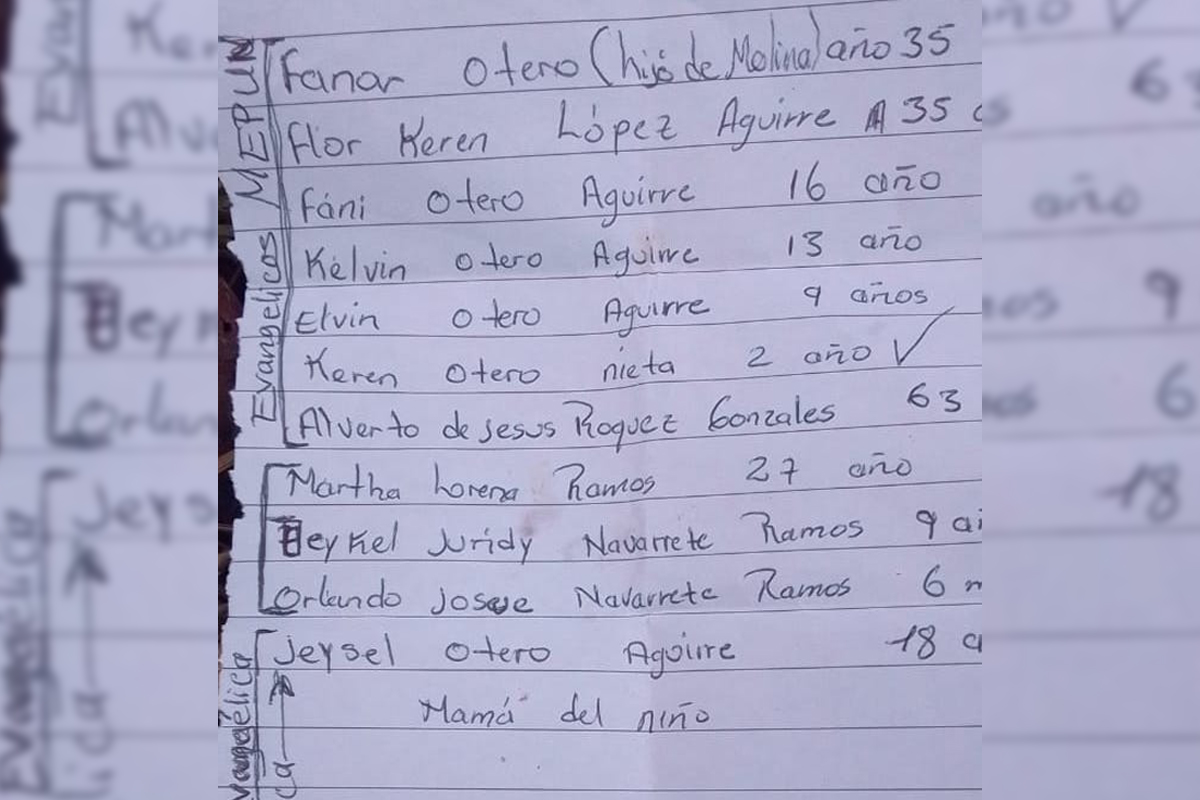 Fanor Otero (hijo de Molina) año 35
Flor Keren López Aguirre 35
Fáni Otero Aguirre 16 año
Kelvin Otero Aguirre 13 año
Elvin Otero Aguirre 9 años
Keren Otero nieta 2 año ✓
Alverto de Jesus Roquez Gonzales 63
Martha Lorena Ramos 27 año
eykel Juridy Navarrete Ramos 9
Orlando Josue Navarrete Ramos 6
Jeysel Otero Aguirre 18
Mamá del niño
Evangelicos MEPUN
vangaélica
ca